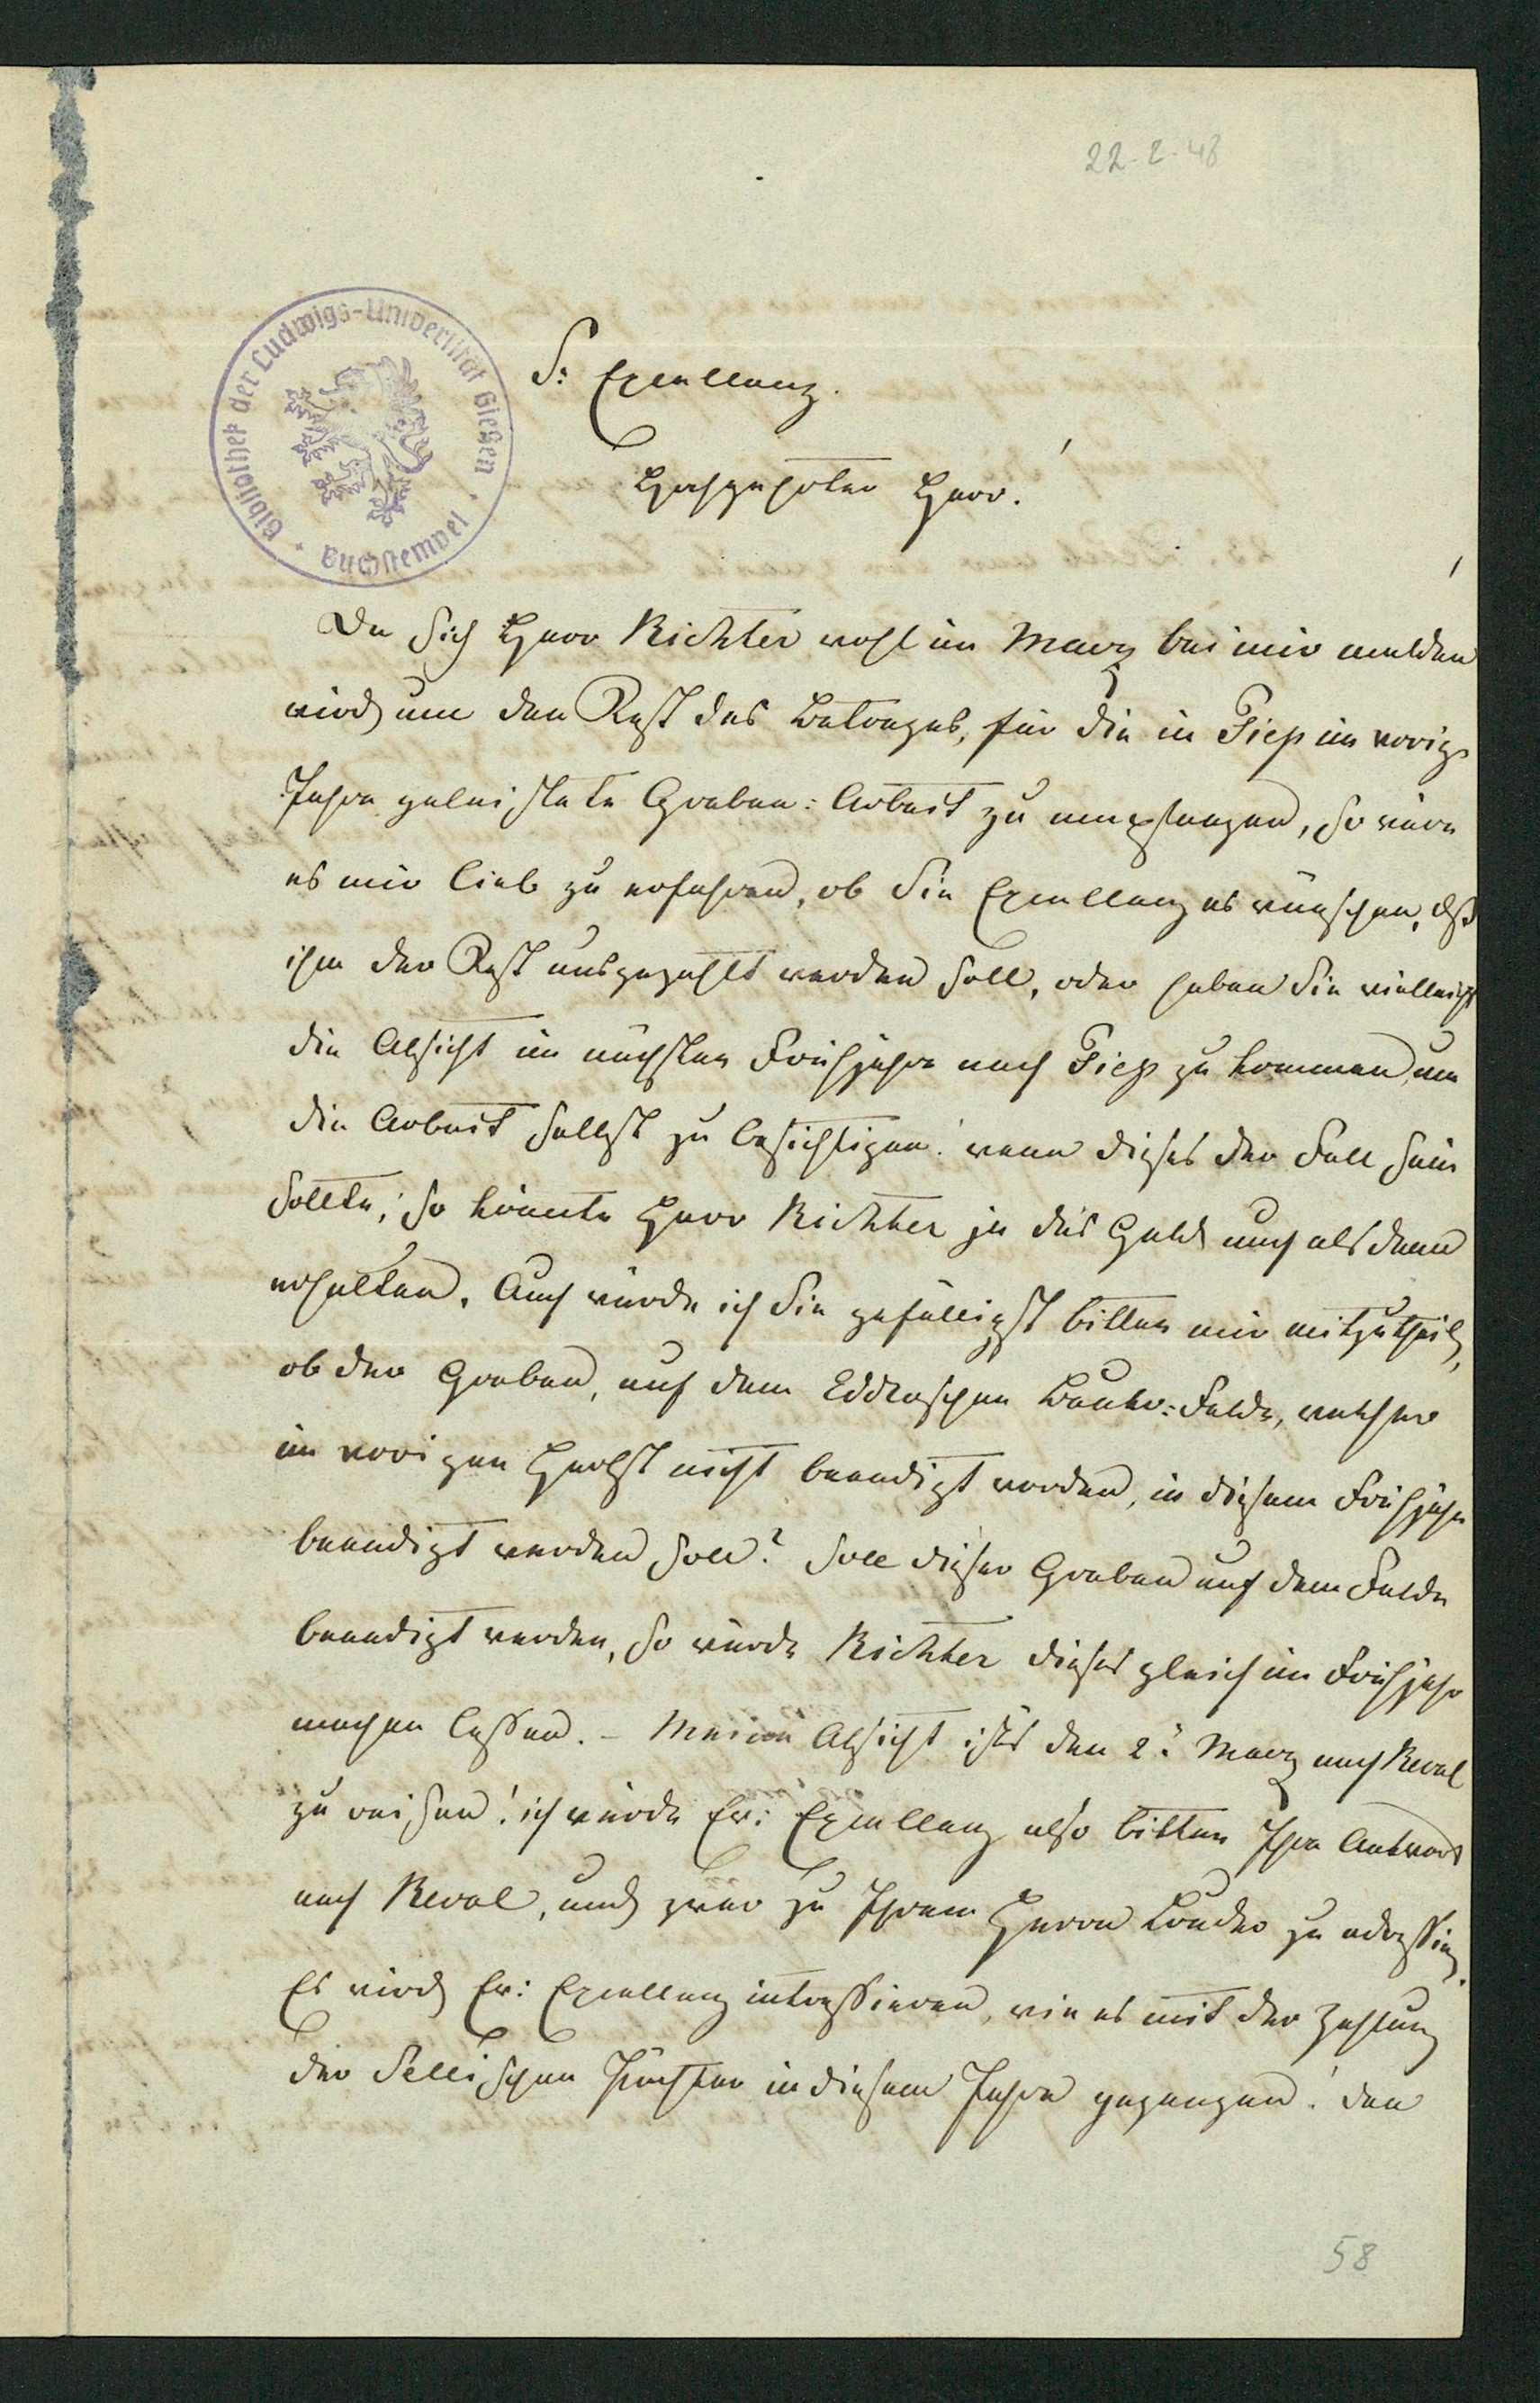 22-2-48
Bibliothek der Ludwigs-Universität Gießen
Buchstempel
Sr Excellenz.
Hochgeehrter Herr!
Da sich Herr Richter wohl im Marz bei mir melden
wird, um den Rest des Betrages, für die in Piep im vorig
Jahre geleistete Graben-Arbeit zu empfangen, so wäre
es mir lieb zu erfahren, ob Sie Excellenz es wünschen, dß
ihm der Rest ausgezahlt werden soll, oder haben Sie vielleicht
die Absicht im nächsten Frühjahre nach Piep zu kommen um
die Arbeit selbst zu besichtigen! wenn dieses der Fall sein
sollte, so könnte Herr Richter ja das Geld auch alsdann
erhalten. Auch würde ich Sie gefälligst bitten mir mitzutheil,
ob der Graben, auf dem Bauer-Felde, welcher
im vorigen Herbst nicht beendigt worden, in diesem Frühjahr
beendigt werden soll? Soll dieser Graben auf dem Felde
beendigt werden, so würde Richter dieses gleich im Frühjahr
machen lassen. – Meine Absicht ist den 2: Marz nach Reval
zu reisen! ich würde Ew: Excellenz also bitten Ihre Antwort
nach Reval, und zwar zu Ihrem Herrn Bruder zu adressir.
Es wird Ew: Excellenz intressieren, wie es mit der Zahlung
der Sellischen Pächter in diesem Jahre gegangen! den
58